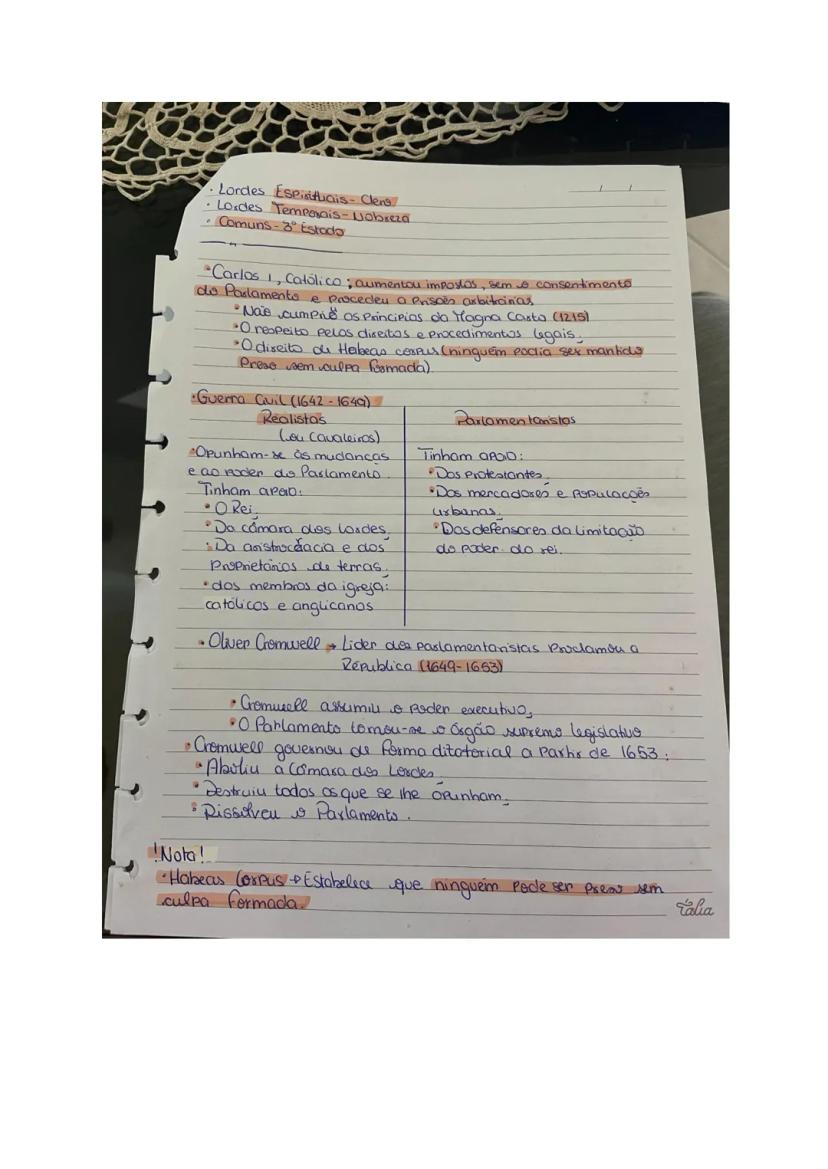 · Lordes Espirituais - Clero
· Lordes Temporais - Nobreza
· Comuns - 3º Estado
• Carlos 1, Católico ; aumentou impostos, sem o consentimento
do Parlamento e procedeu a Prisões arbitrárias
• Não cumpriu os Princípios da Magna Carta (1215)
• O respeito pelos direitos e procedimentos legais.
• O direito de Habeas corpus (ninguém podia ser mantido
Preso sem culpa formada)
• Guerra Civil (1642 - 1649)
Realistas
(ou Cavaleiros)
• Opunham-se às mudanças
e ao poder do Parlamento.
Tinham apoio:
• O Rei,
• Da câmara dos Lordes,
• Da aristocracia e dos
Proprietários de terras.
• dos membros da igreja:
católicos e anglicanos
Parlamentaristas
Tinham apoio:
• Dos Protestantes,
• Dos mercadores e Populações
urbanas;
• Dos defensores da limitação
do Poder do rei.
• Oliver Cromwell → Lider dos parlamentaristas Proclamou a
República (1649-1653)
• Cromwell assumiu o Poder executivo,
• O Parlamento tornou-se o órgão supremo legislativo
• Cromwell governou de forma ditatorial a partir de 1653:
• Aboliu a Câmara dos Lordes.
• Destruiu todos os que se lhe opunham,
• Dissolveu o Parlamento.
! Nota!
• Habeas Corpus → Estabelece que ninguém Pode ser Preso sem
culpa formada.
Tália